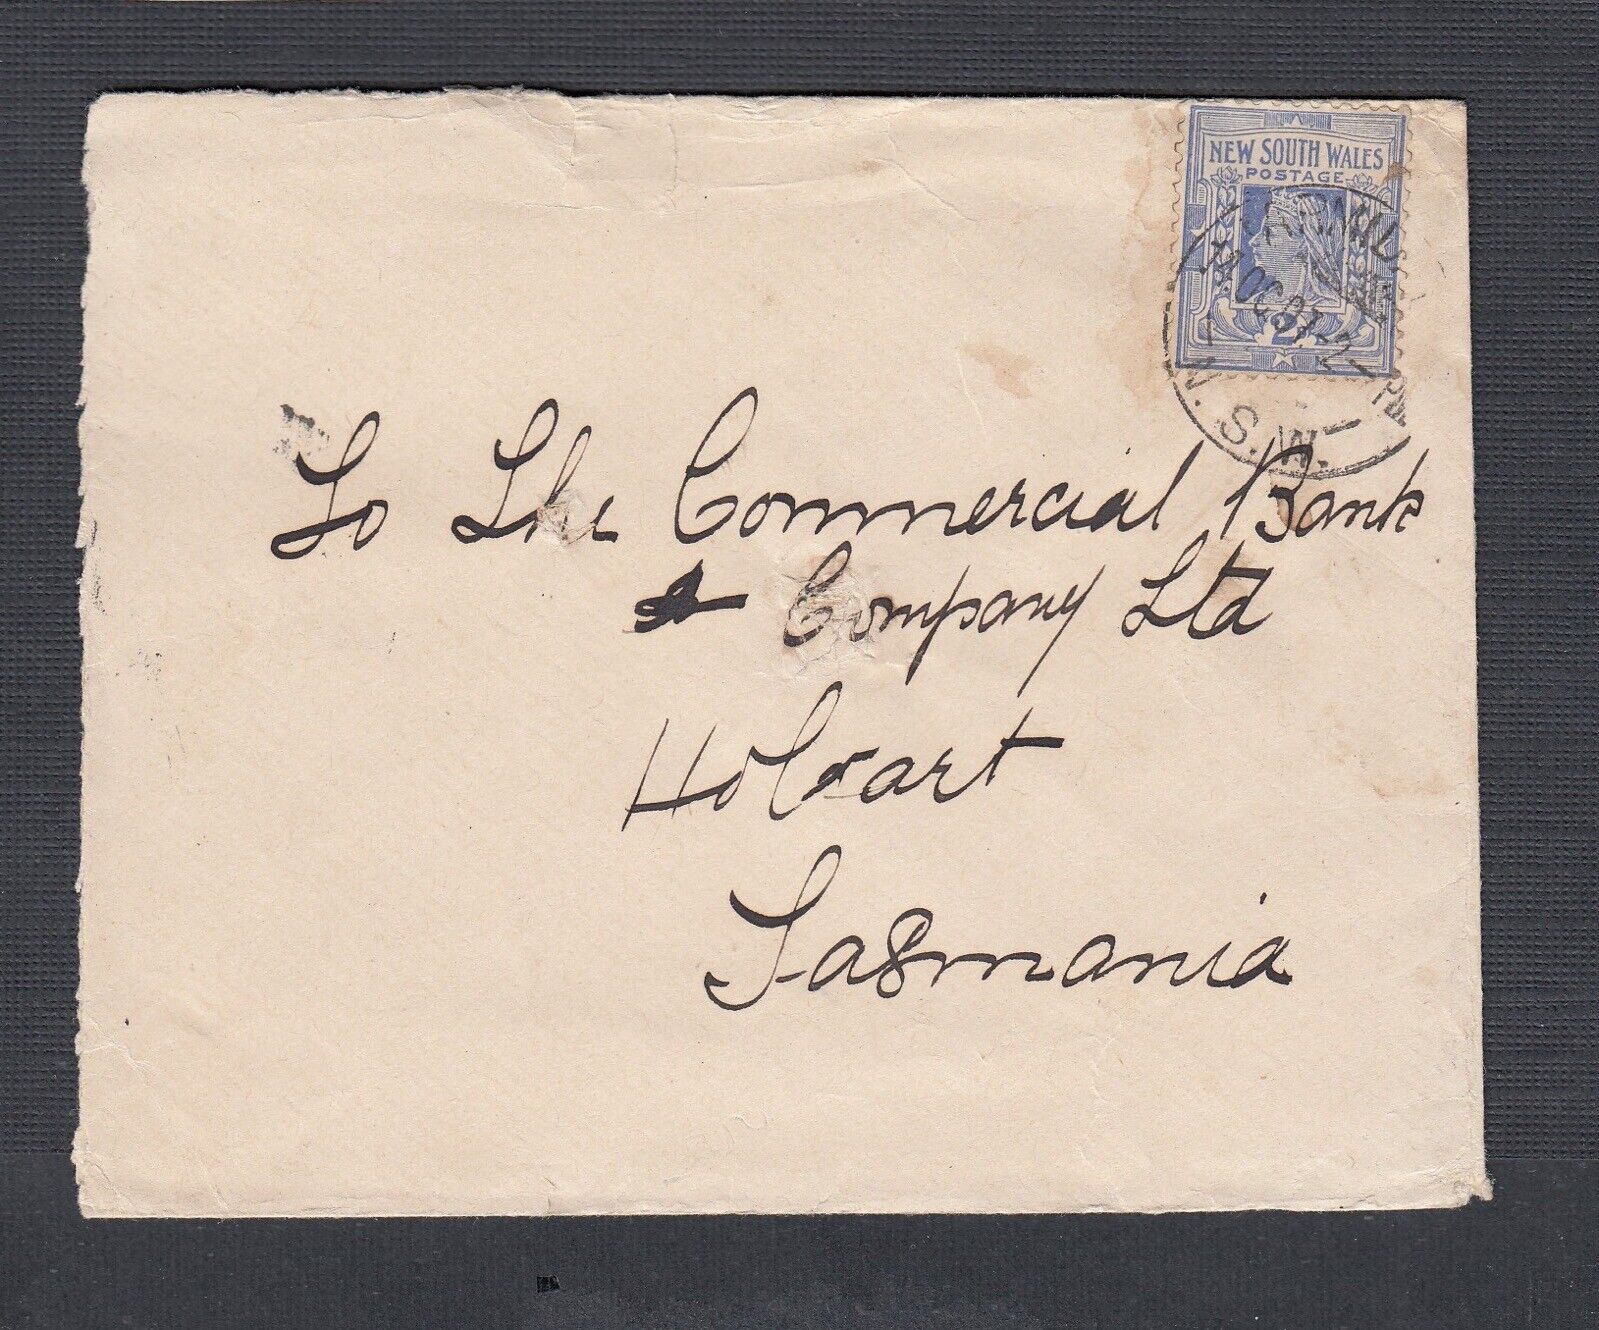 NEW SOUTH WALES
POSTAGE
2
N.S.W.
To The Commercial Bank
Company Ltd
Hobart
Tasmania